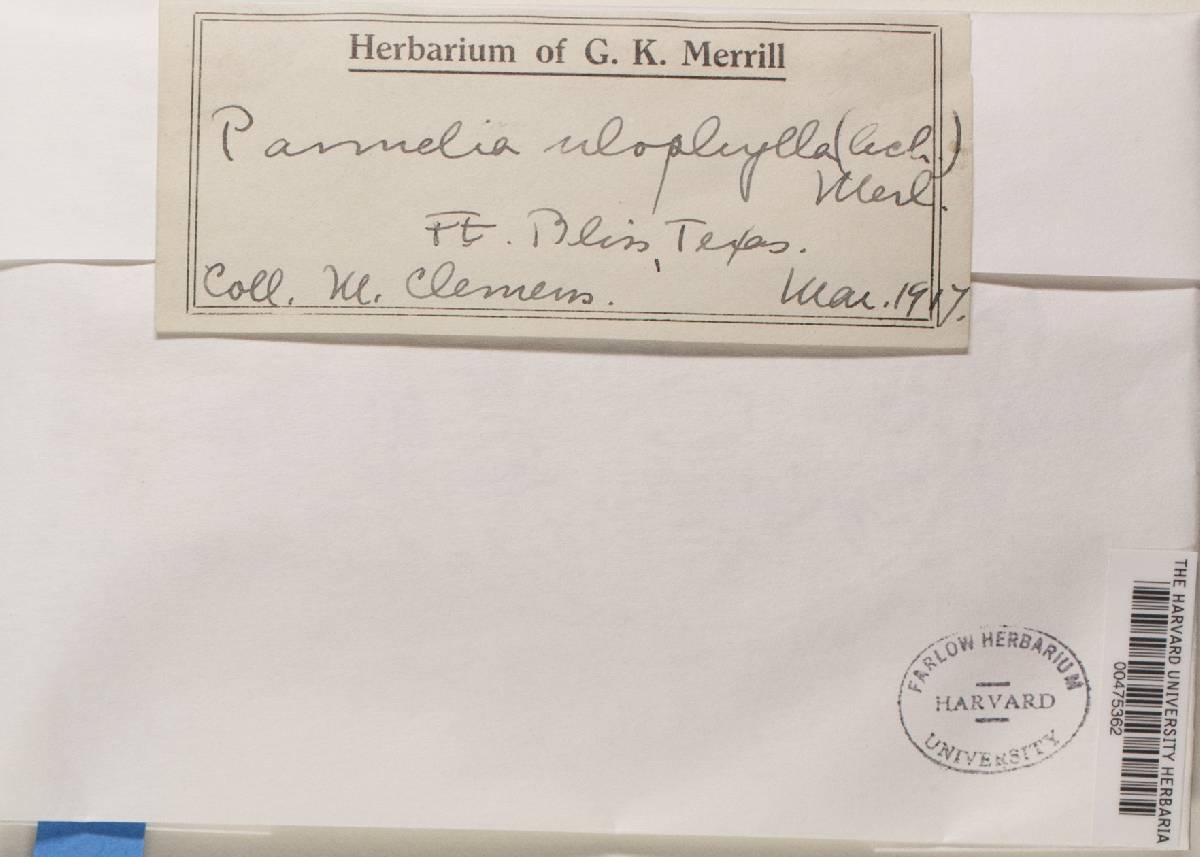 Herbarium of G. K. Merrill
Parmelia ulophylla (Ach.)
Merl.
Ft. Bliss, Texas.
Coll. M. Clemens. Mar. 1917.
FARLOW HERBARIUM
HARVARD
UNIVERSITY
THE HARVARD UNIVERSITY HERBARIA
00475362